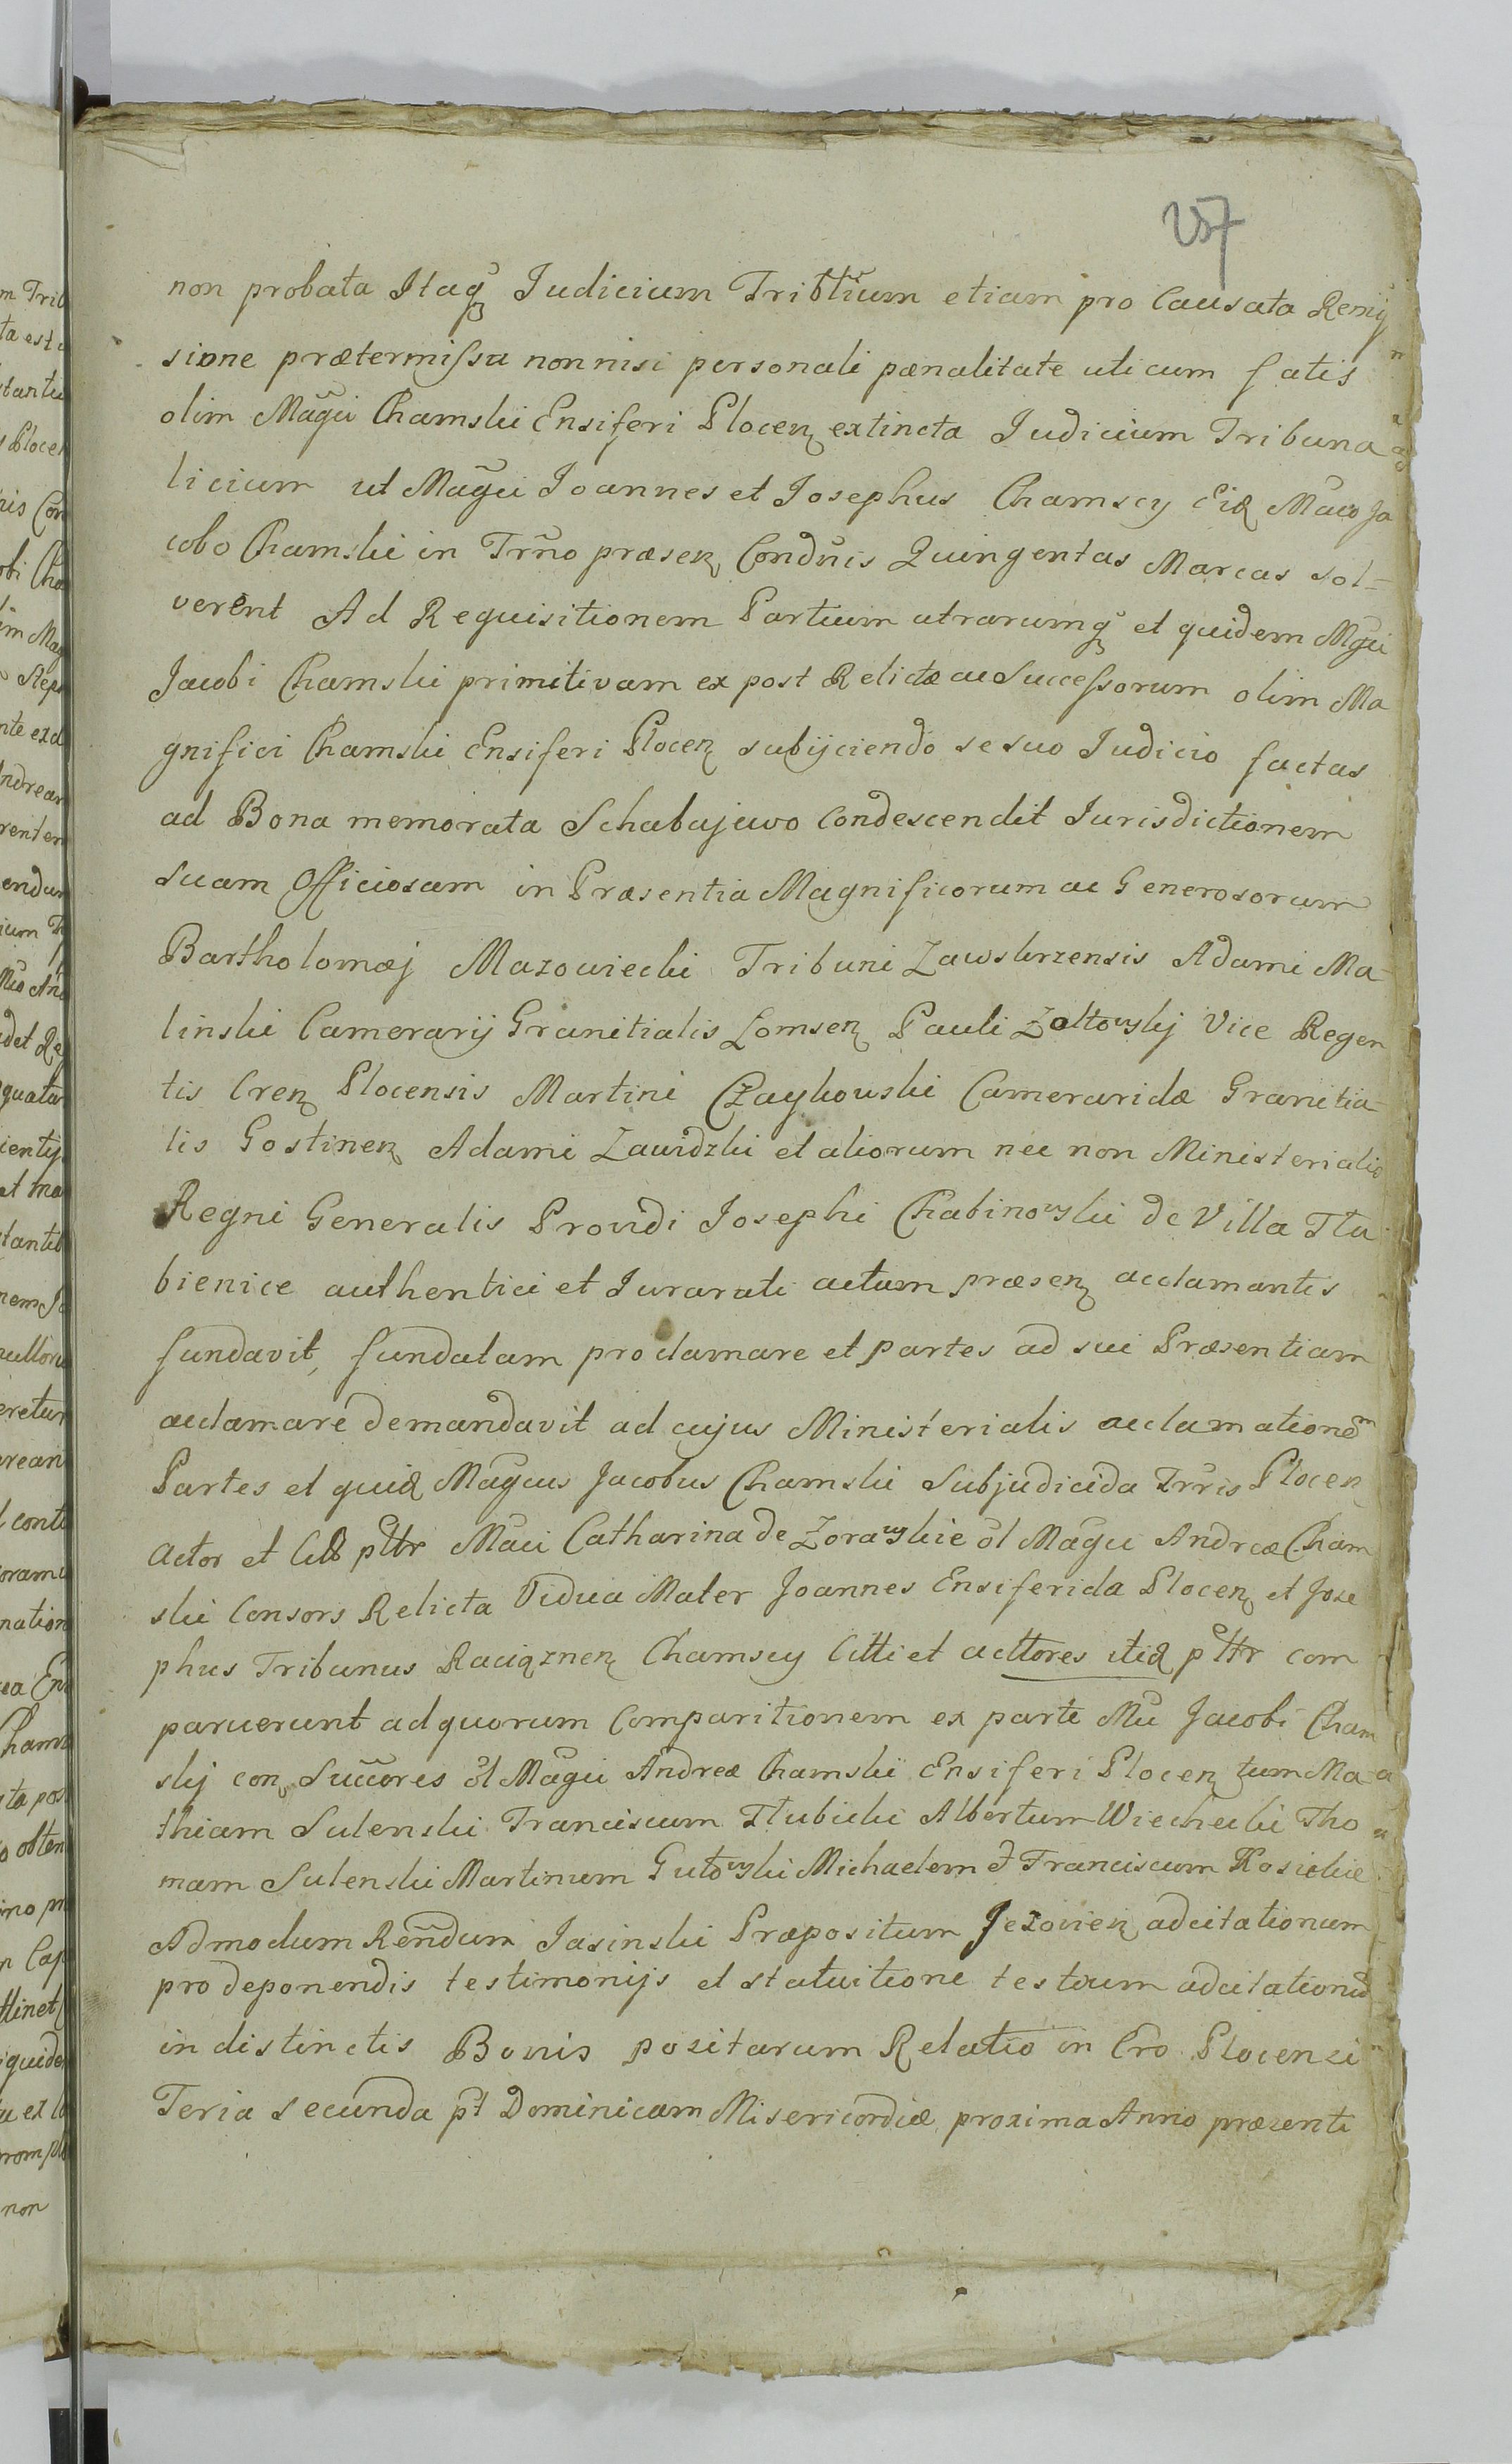 257
non probata Itaq Judicium Tribttium etiam pro Causata Remis
sione prætermissa nonnisi personali pænalitate uti cum fatis
olim Mãgci Chamski Ensiferi Plocen extincta Judicium Tribuna
licium ut Magci Joannes et Josephus Chamscy Eid Mãco Ja
cobo Chamski in Trno præsen Condnis Quingentas Marcas sol-
verent Ad Requisitionem Partium utrarumq et quidem Mgci
Jacobi Chamski primitivam ex post Relictæ ac Successorum olim Ma
gnifici Chamski Ensiferi Plocen subijciendo se suo Judicio factas
ad Bona memorata Schabajewo Condescendit Jurisdictionem
suam Officiosam in Præsentia Magnificorum ac Generosorum
Bartholomæj Mazowiecki Tribuni Zawskrzensis Adami Ma-
linski Camerarij Granitialis Lomsen Pauli Zoltowskj Vice Regen
tis Cren Plocensis Martini Czaykowski Cameraridæ Granitia-
lis Gostinen Adami Zawidzki et aliorum nec non Ministerialis
Regni Generalis Providi Josephi Chabinowski de Villa Tlu
bienice authentici et Jurarati actum præsen acclamantis
fundavit, fundatam proclamare et partes ad sui Præsentiam
acclamare demandavit ad cujus Ministerialis acclamationem
Partes et quid Magcus Jacobus Chamski Subjudicida Trris Plocen
Actor et Citt pttr Maci Catharina de Zorawskie ol Magci Andreæ Cham
ski Consors Relicta Vidua Mater Joannes Ensiferida Plocen et Jose
phus Tribunus Raciąznen Chamscy Citti et acttores itid pttr com
paruerunt ad quorum Comparitionem ex parte Mci Jacobi Cham
skj con Succores ol Magci Andreæ Chamskii Ensiferi Plocen tum Ma
thiam Sulenski Franciscum Tlubicki Albertum Wiechecki Tho
mam Sulenski Martinum Gutowski Michaelem & Franciscum Kosickie
Admodum Rendum Jasinski Præpositum Jezovien adcitationum
pro deponendis testimonijs et statuitione testium adcitationũ
in distinctis Bonis positarum Relatio in Cro Plocensi
Feria secunda pt Dominicam Misericordiæ proxima Anno præsenti